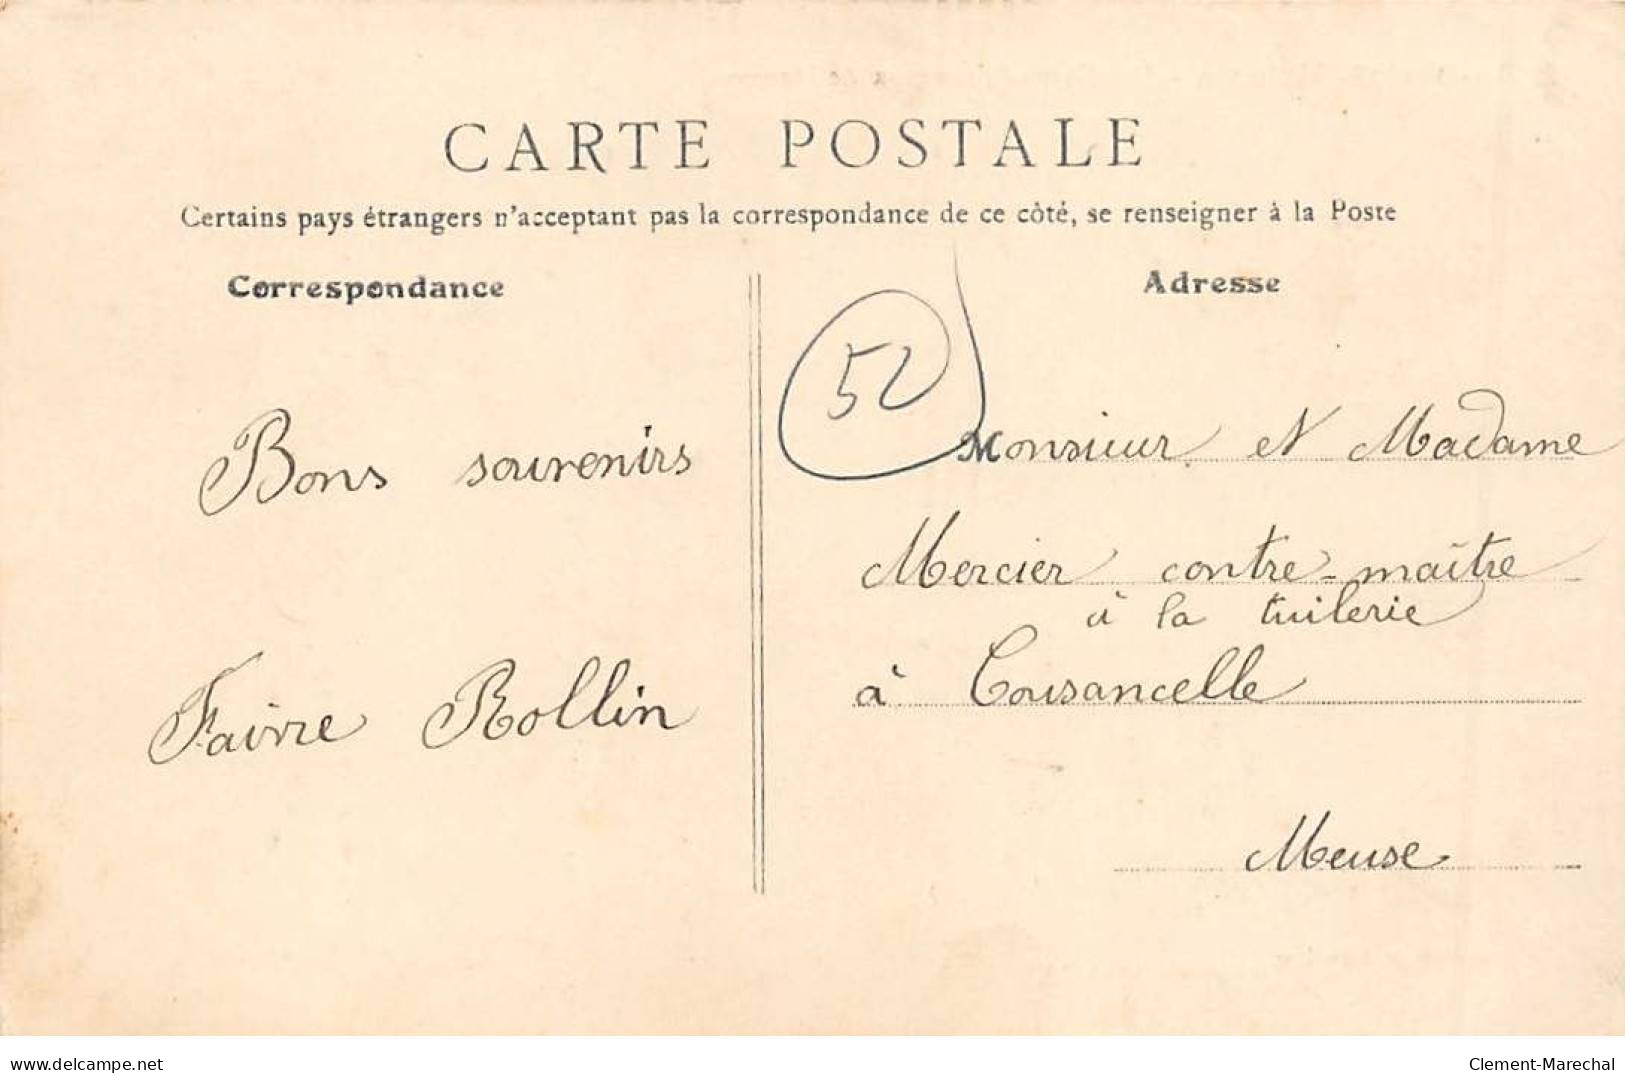 CARTE POSTALE
Certains pays étrangers n'acceptant pas la correspondance de ce côté, se renseigner à la Poste
Correspondance
Bons souvenirs
Faivre Rollin
Adresse
52
Monsieur et Madame
Mercier contre-maître
à la tuilerie
à Cousancelle
Meuse
www.delcampe.net
Clement-Marechal